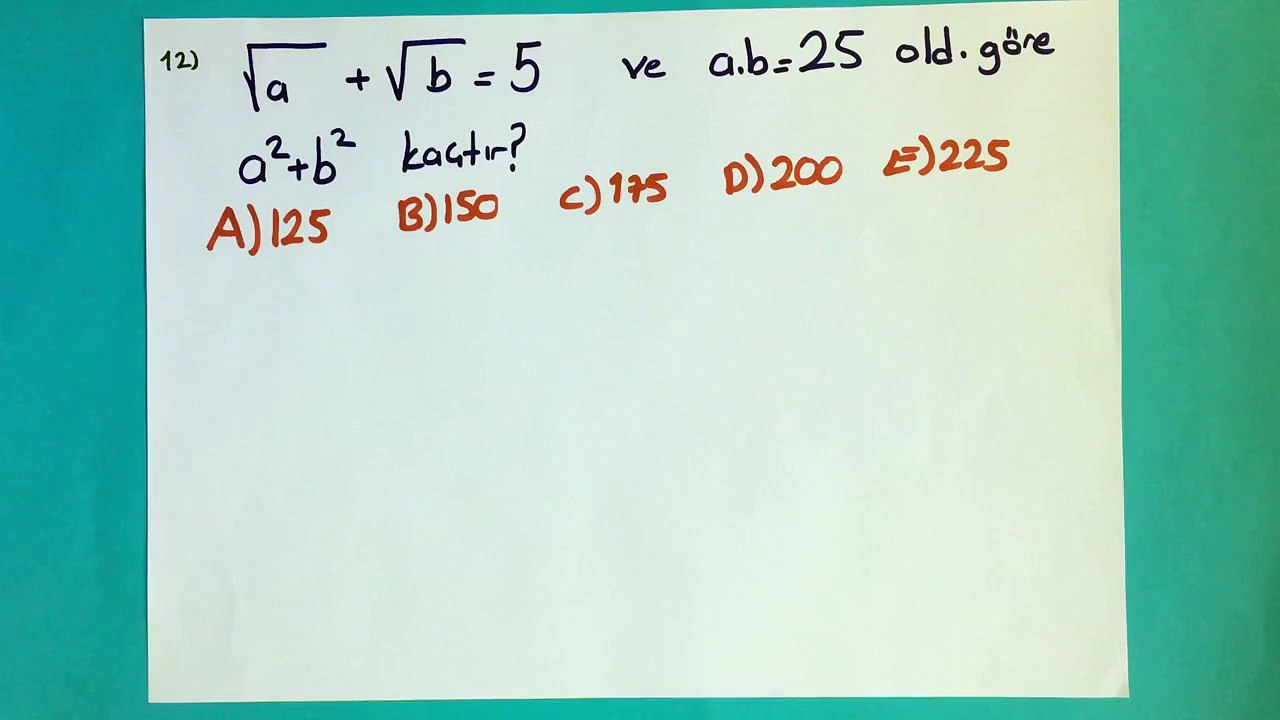 12) √a + √b = 5 ve a.b=25 old. göre
a²+b² kaçtır?
A)125 B)150 C)175 D)200 E)225